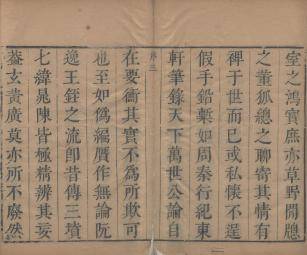 室之鴻寶庶亦草野開牕
之董狐總之聊寄其情有
裨于世而已或私懷不逞
假手鉛槧如周秦行紀東
軒筆錄天下萬世公論自
序三
在要衝其實不為所欺可
也至如偽編贋作無論阮
逸王銍之流即昔傳三墳
七緯晁陳皆極精辨其妄
蓋玄黃廣莫亦所不廢然